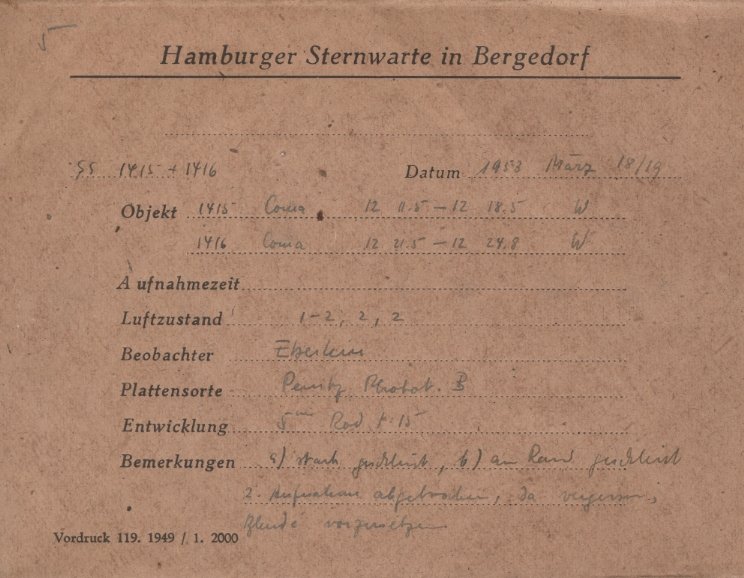 Hamburger Sternwarte in Bergedorf
SS 1415 + 1416 Datum 1953 März 18/19
Objekt 1415 Coma 12 11.5 – 12 18.5 W
1416 Coma 12 21.5 – 12 24.8 W
Aufnahmezeit
Luftzustand 1–2, 2, 2
Beobachter
Plattensorte Perutz B
Entwicklung 5 Rod 1:15
Bemerkungen a) stark geschleiert, b) am Rand geschleiert
2. Aufnahme abgebrochen, da vergessen,
Blende vorzusetzen
Vordruck 119. 1949 / 1. 2000